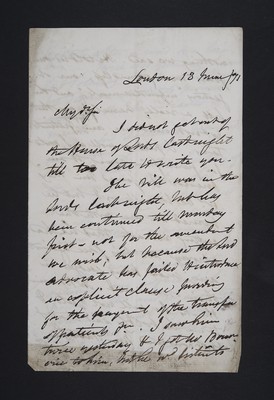 London 13 June /71
My d Sir
I did not get out of
the House of Lords last night
till too late to write you.
The Bill was in the
Lords last night, but has
been continued till Monday
first - not for the amendment
we wish, but because the Lord
Advocate has failed to introduce
an explicit clause providing
for the payment of the transfer
of patients &c. I saw him
twice yesterday & I got
him,